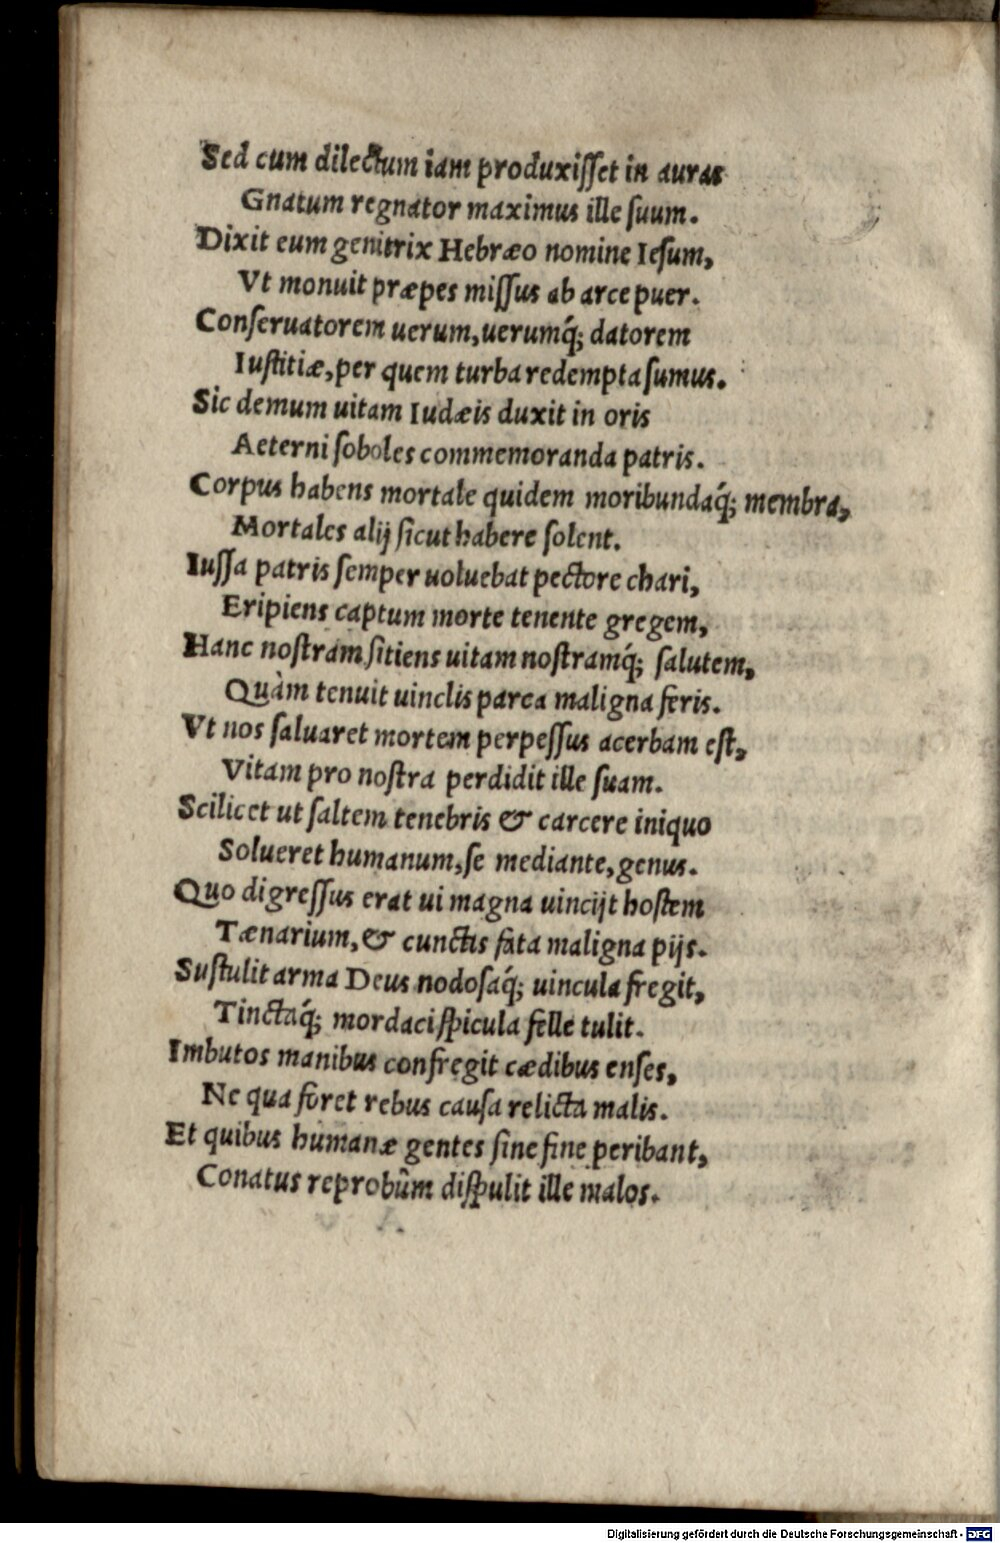 Sed cum dilectum iam produxiſſet in auras
Gnatum regnator maximus ille ſuum.
Dixit eum genitrix Hebræo nomine Ieſum,
Vt monuit præpes miſſus ab arce puer.
Conſeruatorem uerum, uerumq́; datorem
Iuſtitiæ, per quem turba redempta ſumus.
Sic demum uitam Iudæis duxit in oris
Aeterni ſoboles commemoranda patris.
Corpus habens mortale quidem moribundaq́; membra,
Mortales alij ſicut habere ſolent.
Iuſſa patris ſemper uoluebat pectore chari,
Eripiens captum morte tenente gregem,
Hanc noſtram ſitiens uitam noſtramq́; ſalutem,
Quàm tenuit uinclis parca maligna feris.
Vt nos ſaluaret mortem perpeſſus acerbam eſt,
Vitam pro noſtra perdidit ille ſuam.
Scilicet ut ſaltem tenebris & carcere iniquo
Solueret humanum, ſe mediante, genus.
Quo digreſſus erat ui magna uincijt hoſtem
Tænarium, & cunctis fata maligna pijs.
Suſtulit arma Deus nodoſaq́; uincula fregit,
Tinctaq́; mordaci ſpicula felle tulit.
Imbutos manibus confregit cædibus enſes,
Ne qua foret rebus cauſa relicta malis.
Et quibus humanæ gentes ſine fine peribant,
Conatus reprobûm diſpulit ille malos.
Digitalisierung gefördert durch die Deutsche Forschungsgemeinschaft - DFG